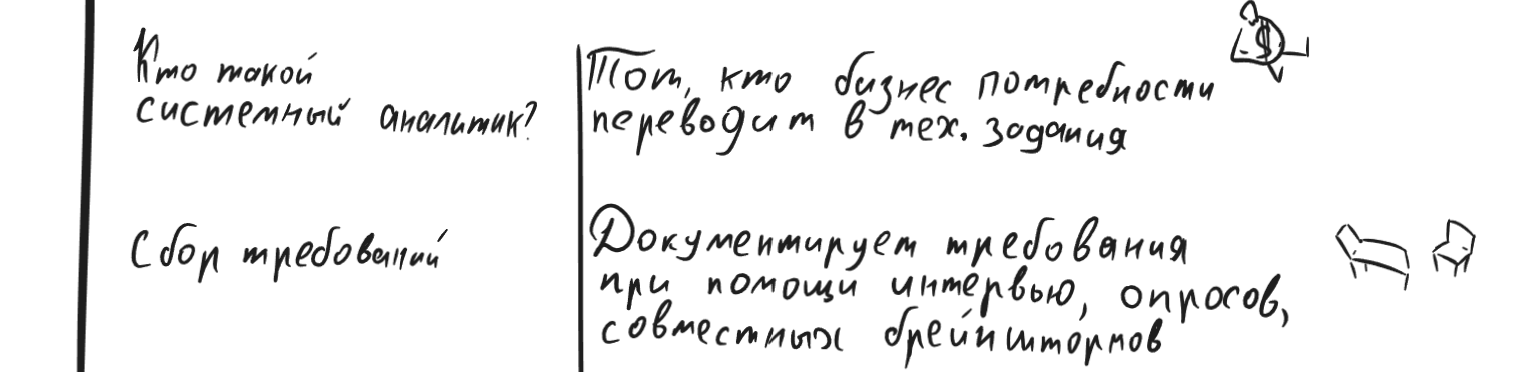 Кто такой
системный аналитик?
Тот, кто бизнес потребности
переводит в тех. задания
$
Сбор требований
Документирует требования
при помощи интервью, опросов,
совместных брейнштормов